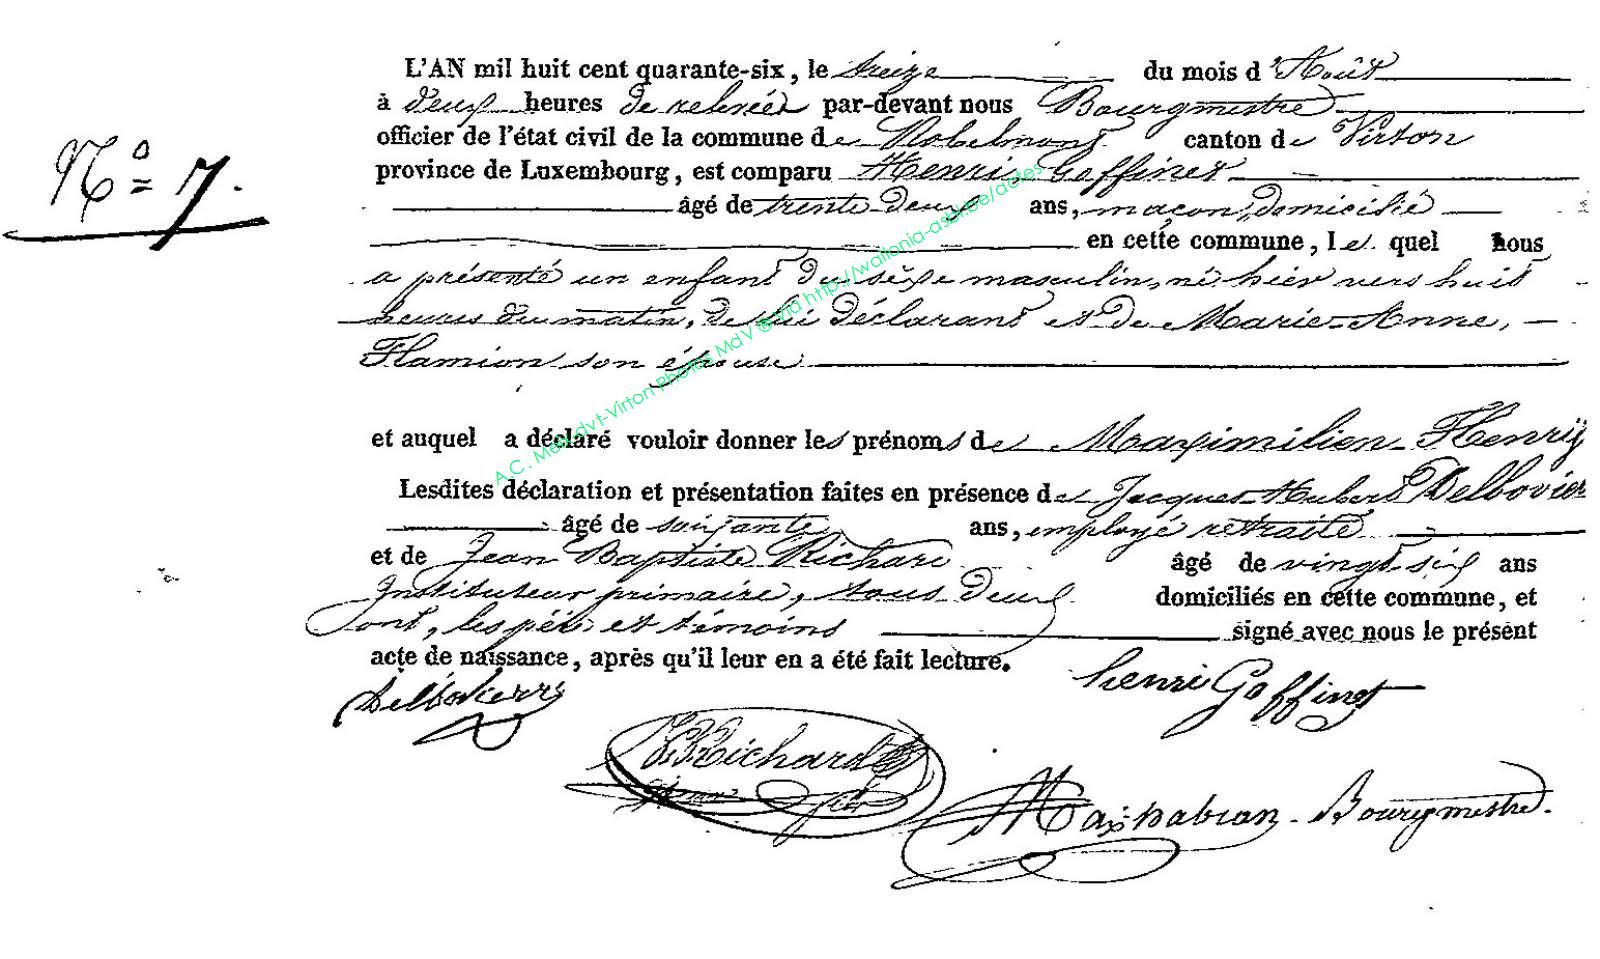 L'AN mil huit cent quarante-six, le treize du mois d'Août
à deux heures de relevée par-devant nous Bourgmestre
officier de l'état civil de la commune de Robelmont canton de Virton
province de Luxembourg, est comparu Henri Goffinet
N° 7.
âgé de trente-deux ans, maçon, domicilié
en cette commune, lequel nous
a présenté un enfant du sèxe masculin, né hier vers huit
heures du matin, de lui déclarant et de Marie-Anne,
Flamion son épouse
et auquel a déclaré vouloir donner les prénoms de Maximilien Henry
Lesdites déclaration et présentation faites en présence de Jacques Hubert Delbovier
âgé de soixante ans, employé retraité
et de Jean Baptiste Richard âgé de vingt-six ans
Instituteur primaire, tous deux domiciliés en cette commune, et
ont, les père et témoins signé avec nous le présent
acte de naissance, après qu'il leur en a été fait lecture.
henri Goffinet
Richard
Bourgmestre.
A.C. Meix-dvt-Virton Photos MdV @ via http://wallonia-asbl.be/actes